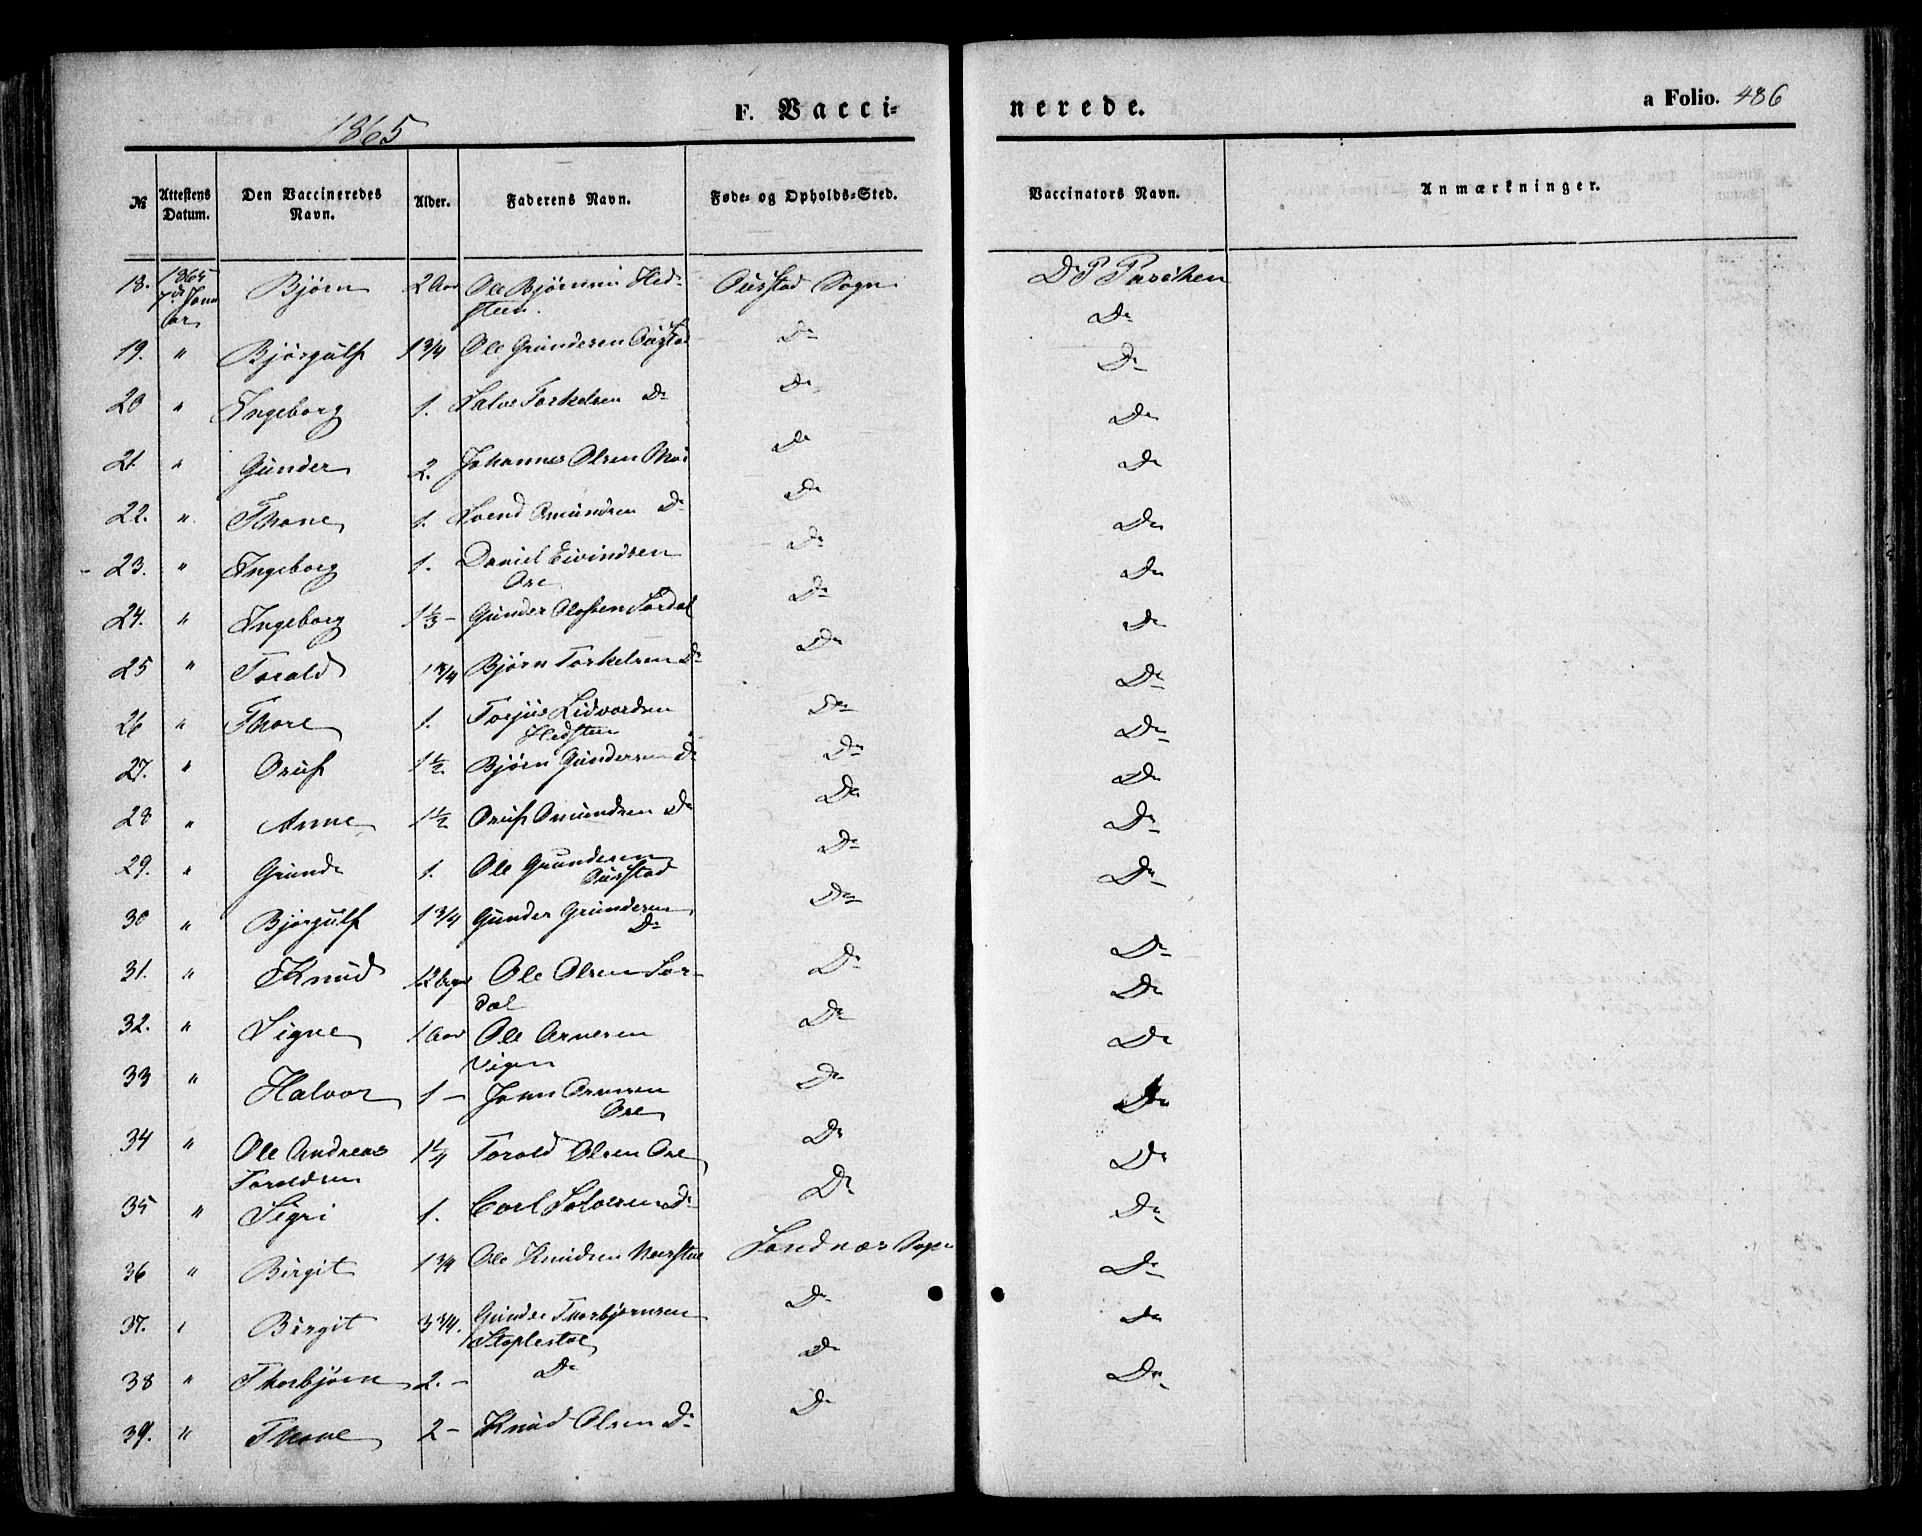 1865
F. Vacci-
nerede.
a Folio. 486
№ Attestens Datum. Den Vaccineredes Navn. Alder. Faderens Navn. Føde- og Opholds-Sted. Vaccinators Navn. Anmærkninger.
18. 1865 Bjørn 2 Aar Ole Bjørnsen Hed-
sten. Austad Sogn
19. " Bjørgulf 1 3/4 Ole Gundersen Austad Do Do
20 " Ingeborg 1. Salve Torkelsen Do Do Do
21. " Gunder 2. Johannes Olsen Do Do
22. " Thone 1. Svend Omundsen Do Do Do
23. " Ingeborg 1. Daniel Eivindsen Do Do
Ose
24. " Ingeborg 1 1/3 - Gunder Olsen Do Do
25 " Torald 1 3/4 Bjørn Torkelsen Do Do Do
26 " Thore 1. Torjus Lidvordsen Do Do
Hedsten
27. " Asuf 1 1/2. Bjørn Gundersen Do Do Do
28 " Anne 1 1/2 Asuf Omundsen Do Do Do
29. " Grunde 1. Ole Grundesen Do Do
Austad
30 " Bjørgulf 1 3/4 Gunder Grundesen Do Do
Do
31. " Knud 12 Ole Olsen Sor-
dal Do Do
32. " Signe 1 Aar Ole Arnesen Do Do
33 " Halvor 1 - Do Do
Ose
34 " Ole Andreas 1 1/4 Torald Olsen Ose Do Do
Toraldsen
35 " Sigri 1. Carl Salvesen Do Do Do
36 " Birgit 1 3/4 Ole Knudsen Sandnæs Sogn Do
37. " Birgit 3 3/4. Gunder Thorbjørnsen Do Do
38 " Thorbjørn 2. - Do Do Do
39. " Thone 2 - Knud Olsen Do Do